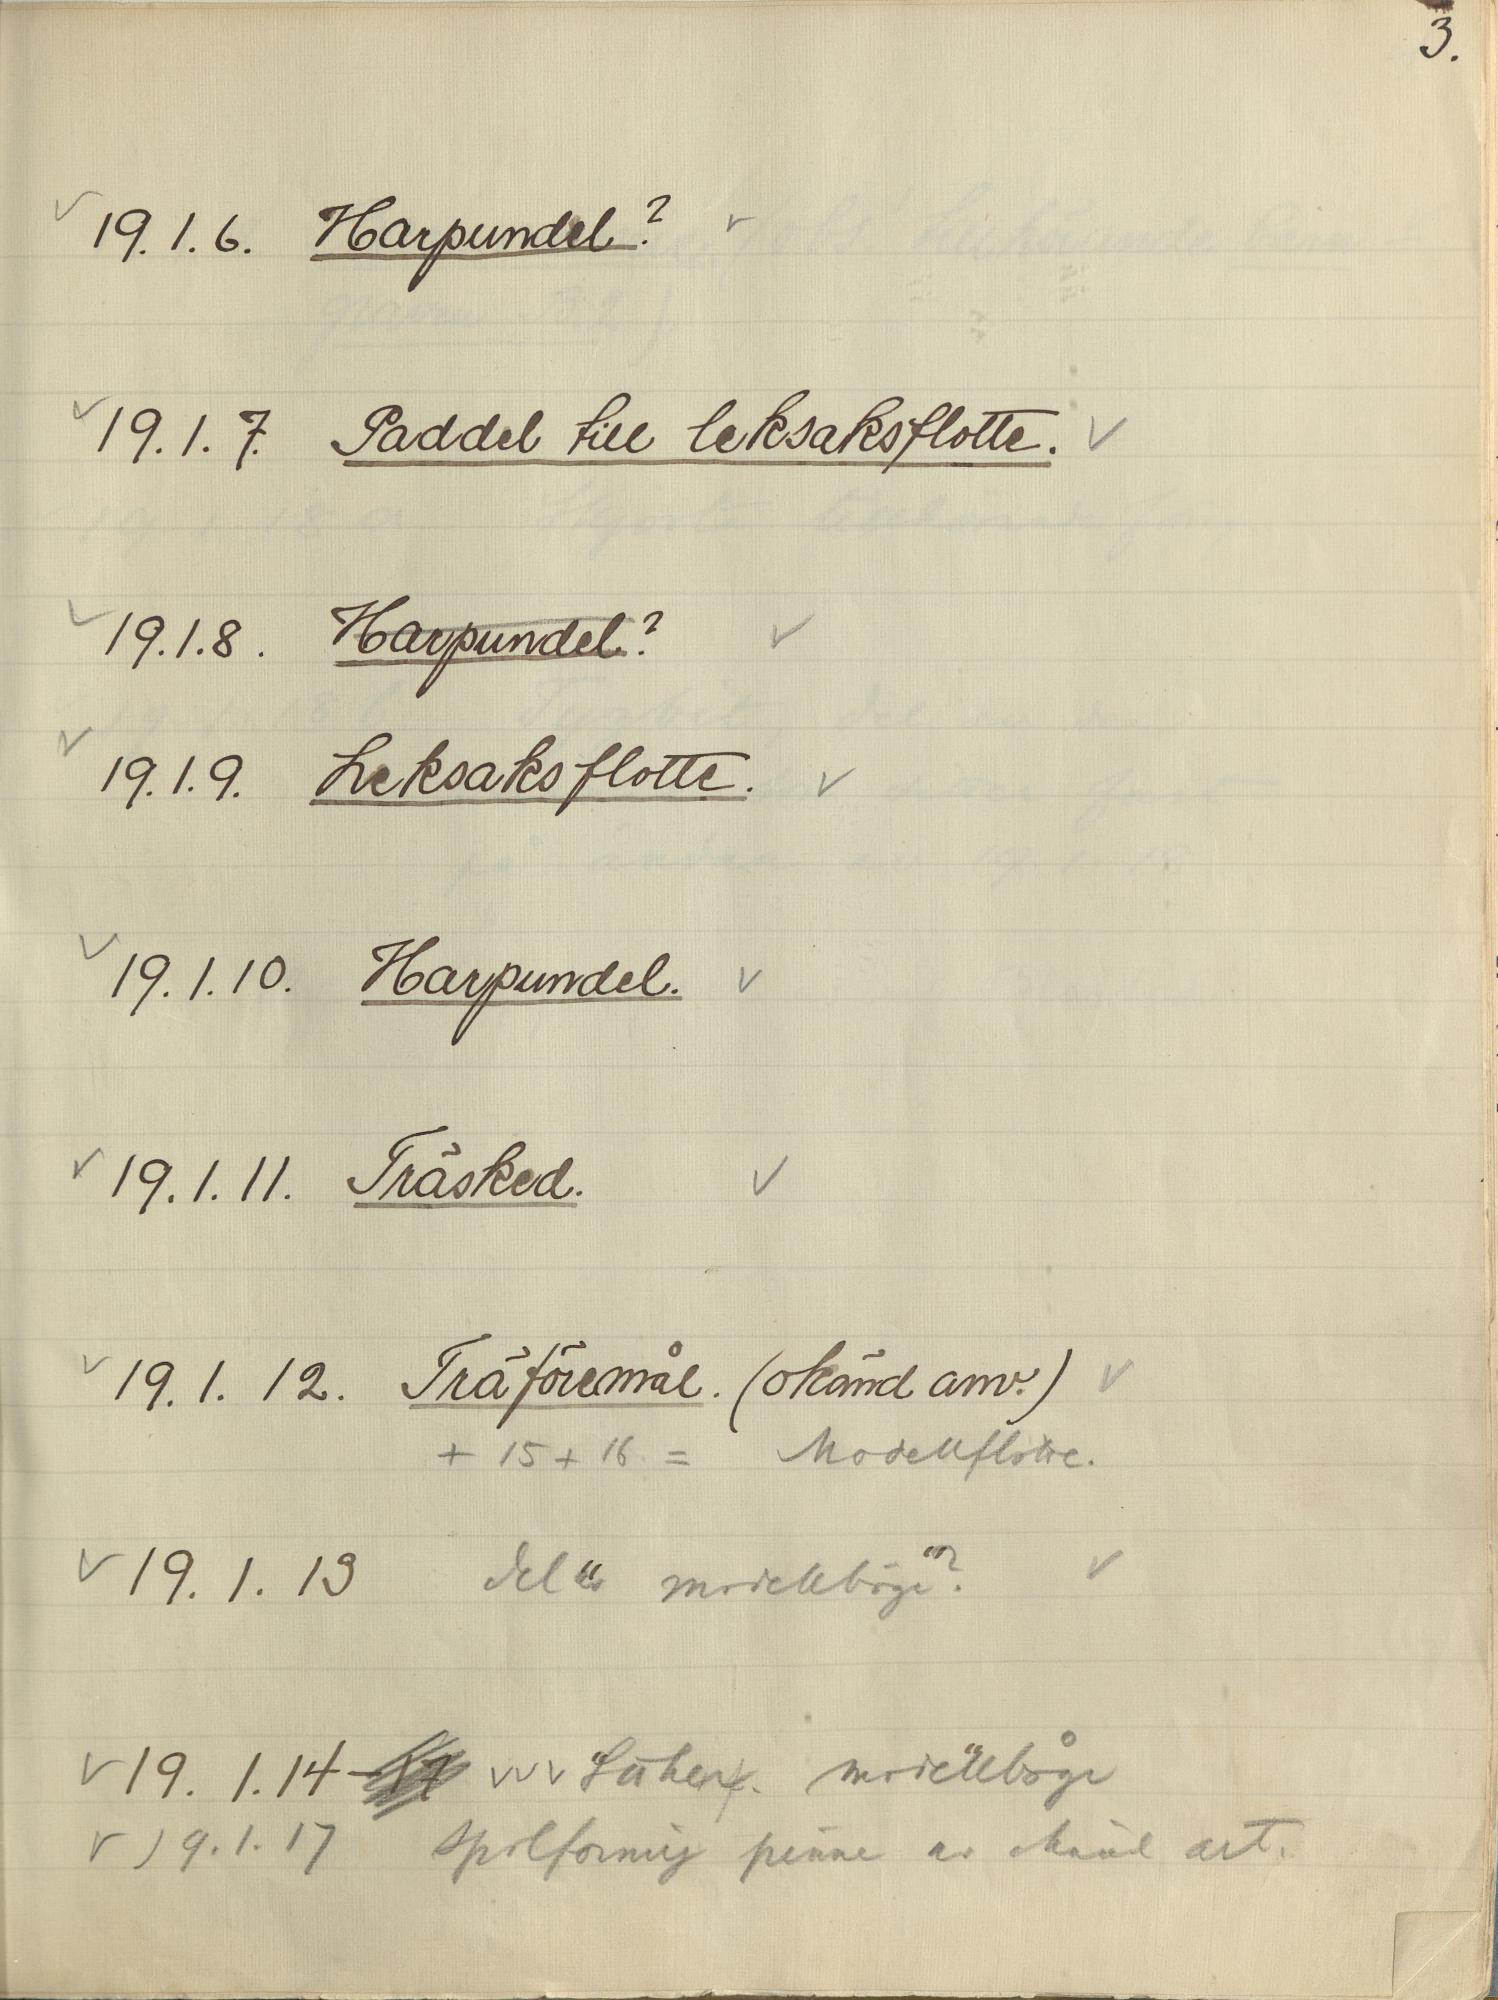 3.
19.1.6. Harpundel?
19.1.7. Paddel till leksaksflotte.
19.1.8. Harpundel?
19.1.9. Leksaksflotte.
19.1.10. Harpundel.
19.1.11. Träsked.
19.1.12. Träföremål. (okänd anv.)
+ 15 + 16 = Modellflotte.
19.1.13 del "av modellbåge"?
19.1.14-17 modellbåge
19.1.17 Spolformig pinne av okänd art.